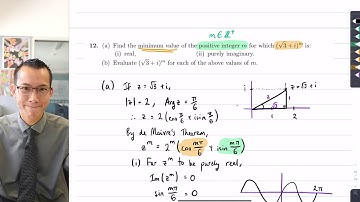 m ∈ ℤ⁺
12. (a) Find the minimum value of the positive integer m for which (√3 + i)ᵐ is:
(i) real, (ii) purely imaginary.
(b) Evaluate (√3 + i)ᵐ for each of the above values of m.
(a) If z = √3 + i,
|z| = 2, Arg z = π/6
∴ z = 2(cos π/6 + i sin π/6)
By de Moivre's Theorem,
zᵐ = 2ᵐ(cos mπ/6 + i sin mπ/6)
(i) For zᵐ to be purely real,
Im(zᵐ) = 0
sin mπ/6 = 0
z = √3 + i
i
2
1
√3
1
2
2π